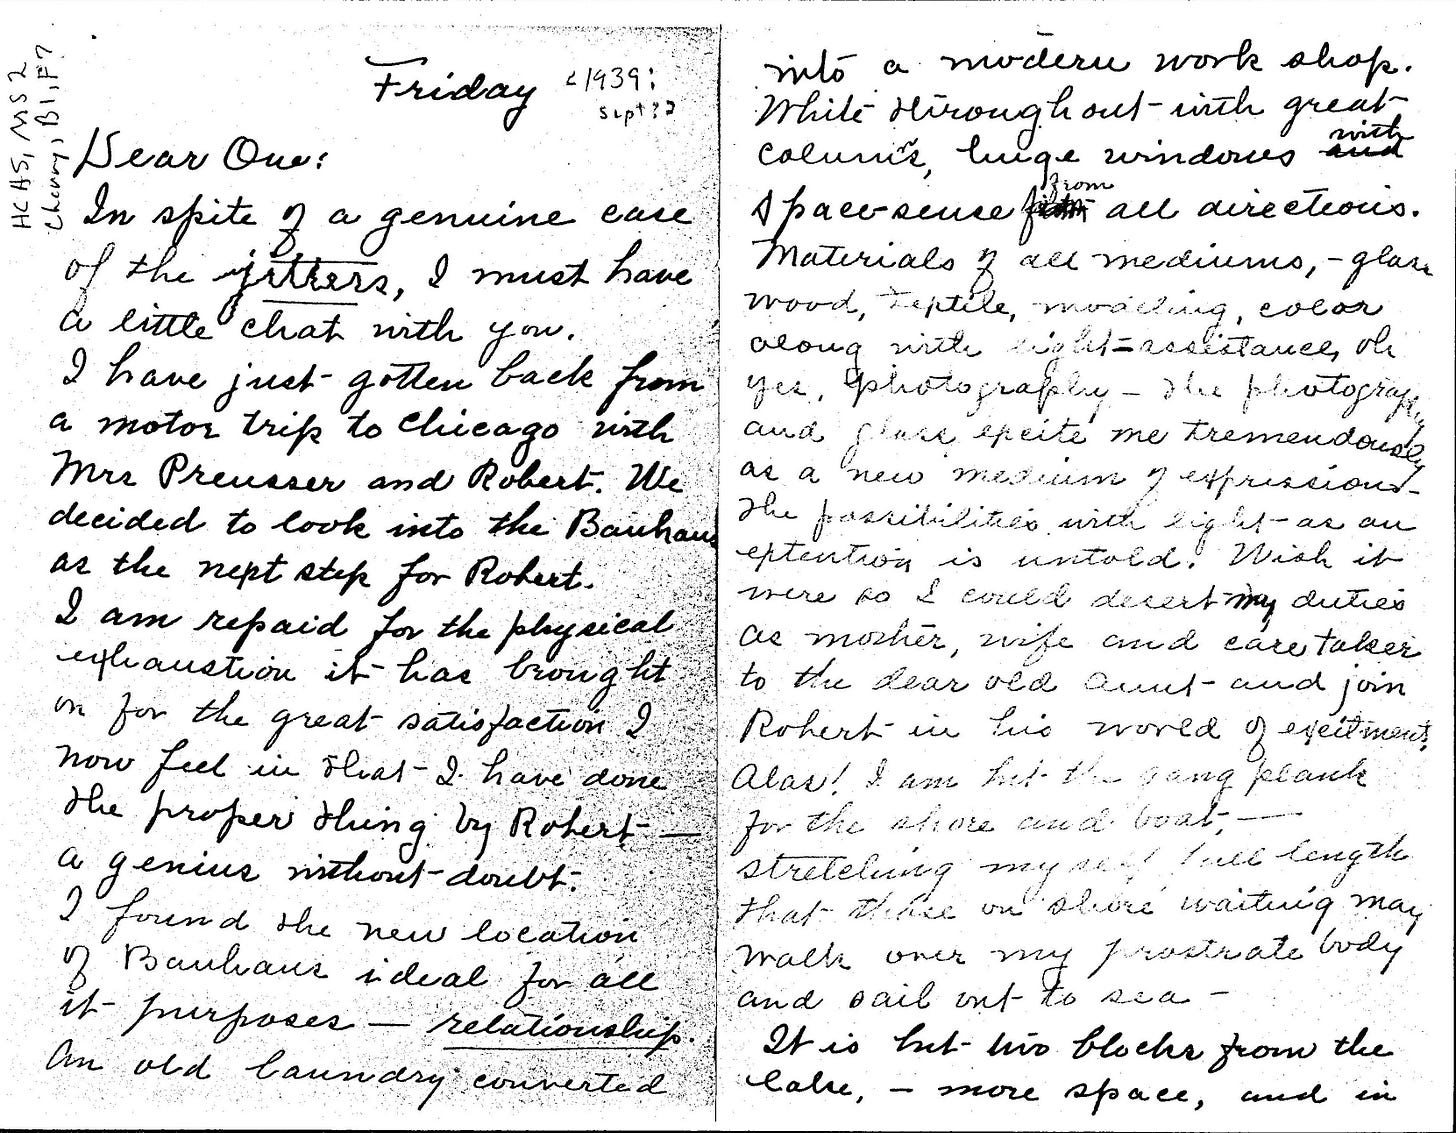 HCAS, MS 2
Cherry, B1, F7
Friday
<1939:
Sept??
Dear One:
In spite of a genuine case
of the jitters, I must have
a little chat with you.
I have just gotten back from
a motor trip to Chicago with
Mrs Preusser and Robert. We
decided to look into the Bauhaus
as the next step for Robert.
I am repaid for the physical
exhaustion it has brought
on for the great satisfaction I
now feel in that I have done
the proper thing by Robert —
a genius without doubt.
I found the new location
of Bauhaus ideal for all
it purposes — relationship.
An old laundry converted
into a modern work shop.
White throughout with great
colums, huge windows with
space-sense from all directions.
Materials of all mediums, - glass
wood, textile, modeling, color
along with light-assistance, oh
yes, photography — the photography
and glass excite me tremendously
as a new medium of expression -
the possibilities with light as an
extention is untold. Wish it
were so I could desert my duties
as mother, wife and care taker
to the dear old aunt and join
Robert in his world of excitment.
Alas! I am but the gang plank
for the shore and boat, —
stretching my self full length
that those on shore waiting may
walk over my prostrate body
and sail out to sea -
It is but two blocks from the
lake, - more space, and in